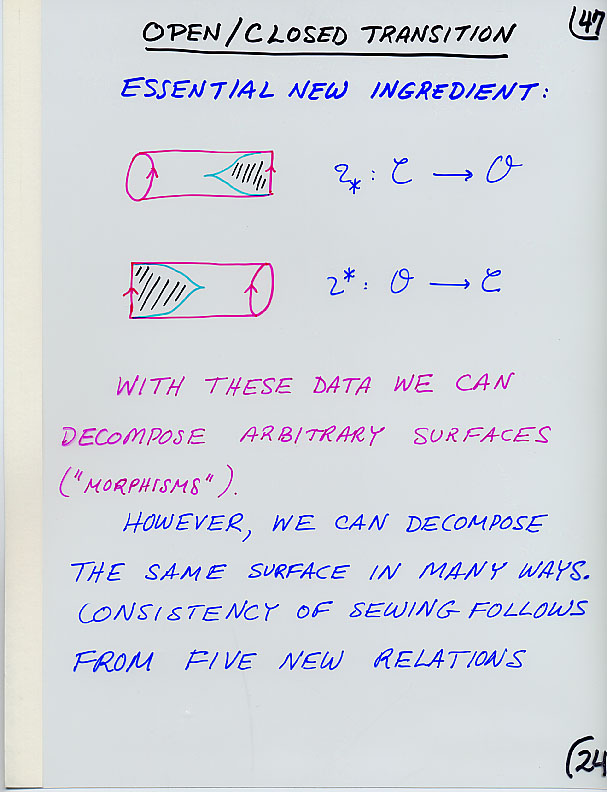 (47
OPEN/CLOSED TRANSITION
ESSENTIAL NEW INGREDIENT:
ι_* : 𝒞 → 𝒪
ι^* : 𝒪 → 𝒞
WITH THESE DATA WE CAN
DECOMPOSE ARBITRARY SURFACES
("MORPHISMS").
HOWEVER, WE CAN DECOMPOSE
THE SAME SURFACE IN MANY WAYS.
CONSISTENCY OF SEWING FOLLOWS
FROM FIVE NEW RELATIONS
(24